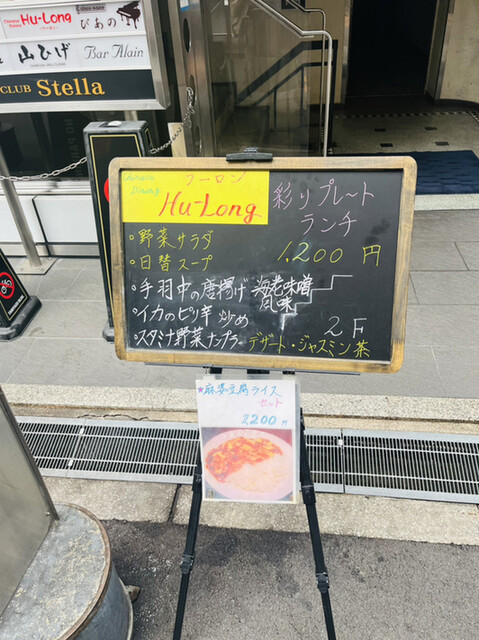 Hu-Long
ぴあの
山ひげ
Bar Alain
CLUB Stella
フーロン
Hu-Long
彩りプレート
ランチ
1,200円
・野菜サラダ
・日替スープ
・手羽中の唐揚げ 海老味噌
風味
・イカのピリ辛炒め
・スタミナ野菜ナンプラー
2F
デザート・ジャスミン茶
★麻婆豆腐ライス
セット
2,200円